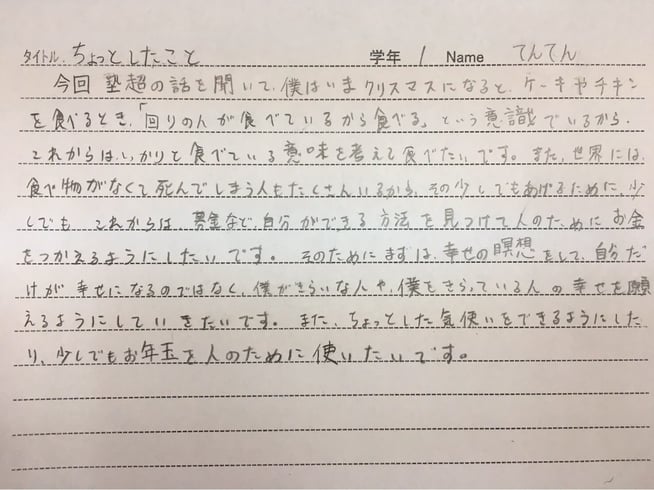 タイトル. ちょっとしたこと 学年 1 Name てんてん
今回 塾超の話を聞いて、僕はいまクリスマスになると、ケーキやチキン
を食べるとき、「回りの人が食べているから食べる」という意識でいるから、
これからは、しっかりと食べている意味を考えて食べたいです。また、世界には、
食べ物がなくて死んでしまう人もたくさんいるから、その少しでもあげるために、少
しでも これからは、募金など、自分ができる方法を見つけて人のためにお金
をつかえるようにしたいです。そのためにまずは、幸せの瞑想をして、自分だ
けが幸せになるのではなく、僕がきらいな人や、僕をきらっている人の幸せを願
えるようにしていきたいです。また、ちょっとした気使いをできるようにした
り、少しでもお年玉を人のために使いたいです。